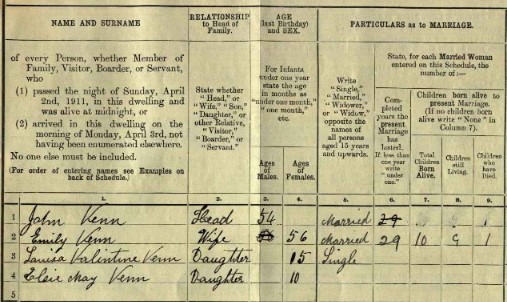 NAME AND SURNAME
RELATIONSHIP to Head of Family.
AGE (last Birthday) and SEX.
PARTICULARS as to MARRIAGE.
of every Person, whether Member of Family, Visitor, Boarder, or Servant, who
(1) passed the night of Sunday, April 2nd, 1911, in this dwelling and was alive at midnight, or
(2) arrived in this dwelling on the morning of Monday, April 3rd, not having been enumerated elsewhere.
No one else must be included.
(For order of entering names see Examples on back of Schedule.)
State whether "Head," or "Wife," "Son," "Daughter," or other Relative, "Visitor," "Boarder," or "Servant."
For Infants under one year state the age in months as "under one month," "one month," etc.
Ages of Males.
Ages of Females.
Write "Single," "Married," "Widower," or "Widow," opposite the names of all persons aged 15 years and upwards.
State, for each Married Woman entered on this Schedule, the number of:—
Completed years the present Marriage has lasted. If less than one year write "under one."
Children born alive to present Marriage. (If no children born alive write "None" in Column 7).
Total Children Born Alive.
Children still Living.
Children who have Died.
1. 2. 3. 4. 5. 6. 7. 8. 9.
1 John Venn Head 54 Married 29
2 Emily Venn Wife 56 Married 29 10 9 1
3 Louisa Valintine Venn Daughter 15 Single
4 Elsie May Venn Daughter 10
5